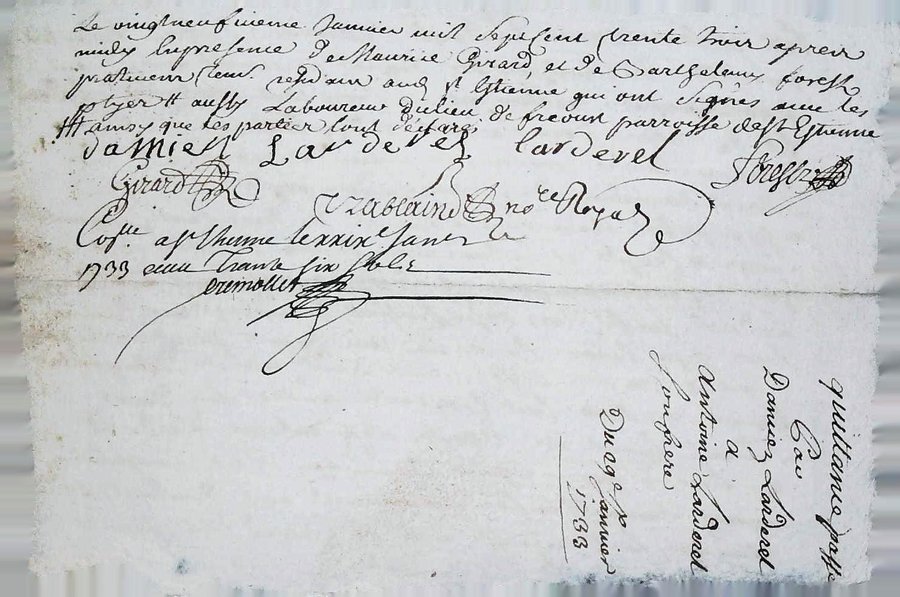 Le vingtneufvieme Janvier mil sept cent trente trois apres
midy En presence de Maurice Girard, et de Barthelemy forest
praticiens residans aud. st Estienne qui ont signés avec les
parties aussy Laboureur du lieu de parroisse de st Estienne
ainsy que les parties l'ont déclaré
damiel Larderel larderel
Girard forest
nore Royal
a st Etienne le xxixe Janer
1733 Trante six sols
quittance passée
Par
Daniez Larderel
a
Antoine Larderel
son frere
Du 29e Janvier
1733